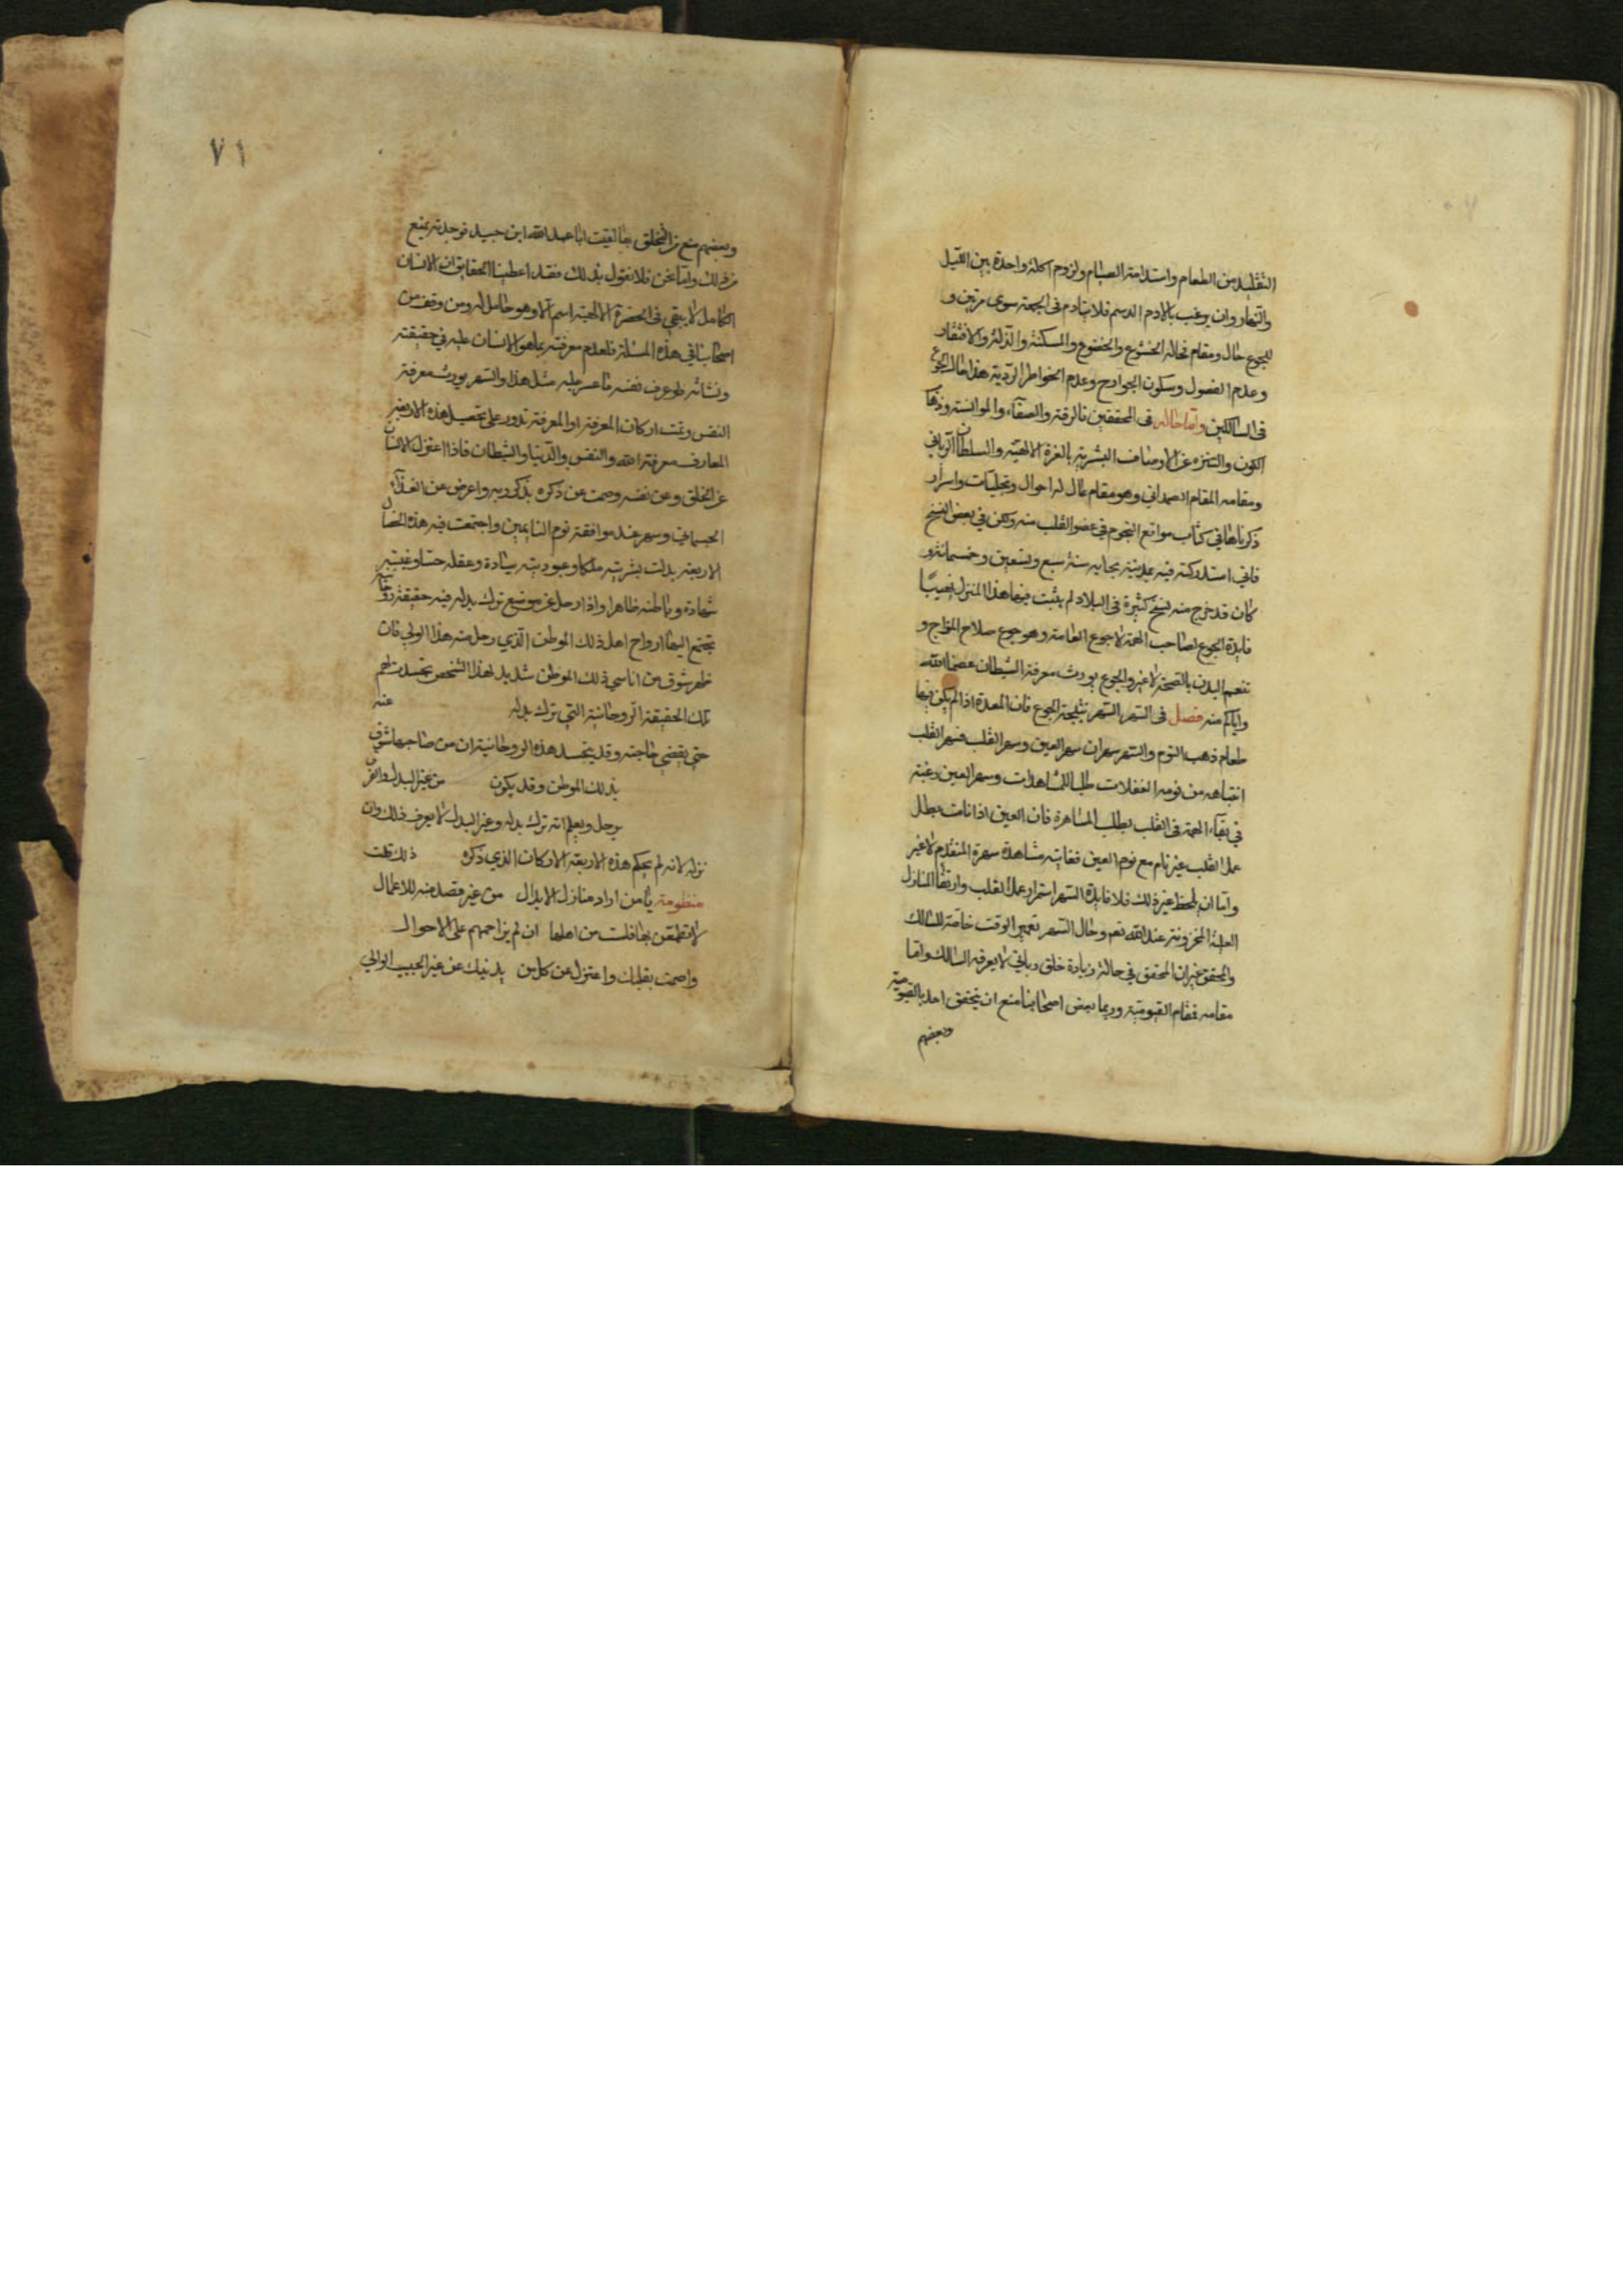 التقليد من الطعام واستدامة الصيام ولزوم اكلة واحدة بين الليل
والنهار وان يرغب بالادم الدسم فلا يتادم في الجمعة سوى مرتين و
للجوع حال ومقام فحاله الخشوع والخضوع والمسكنة والذلة والافتقار
وعدم الفضول وسكون الجوارح وعدم الخواطر الردية هذا حال الجوع
في السالكين واما حاله في المحققين فالرقة والصفاء والموانسة وذهاب
الكون والتنزه عن الاوصاف البشرية بالعزة الالهية والسلطان الرباني
ومقامه المقام الصمداني وهو مقام عال له احوال وتجليات واسرار
ذكرناها في كتاب مواقع النجوم في عضو القلب منه ولكن في بعض النسخ
فاني استدركته فيه بمدينة بجاية سنة سبع وتسعين وخمسمائة و
كان قد خرج منه نسخ كثيرة في البلاد لم يثبت فيها هذا المنزل فهذا
فايدة الجوع لصاحب الهمة لا جوع العامة وهو جوع صلاح المزاج و
تنعم البدن بالصحة لا غير والجوع يورث معرفة الشيطان عصمنا الله
واياكم منه فصل في السهر السهر نتيجة الجوع فان المعدة اذا لم يكن فيها
طعام ذهب النوم والسهر سهران سهر العين وسهر القلب فسهر القلب
انتباهه من نومة الغفلات طلبا للمشاهدات وسهر العين رغبة
في بقاء الهمة في القلب بطلب المسامرة فان العين اذا نامت بطل
عمل القلب غير نام مع نوم العين فغايته مشاهدة سهرة المتقدم لا غير
واما ان يلحظ غير ذلك فلا فايدة السهر استمرار عمل القلب وارتقا المنازل
العلية المخزونة عند الله نعم وحال السهر تعمير الوقت خاصة للسالك
والمحقق غير ان المحقق في حالة زيادة خلق رباني لا يعرفه السالك واما
مقامه فمقام القيومية وربما بعض اصحابنا منع ان يتحقق احد بالقيومية
وبعضهم
٧١
وبعضهم منع من التخلق بها لقيت ابا عبد الله ابن جبيد فوجدته يمنع
من ذلك واما نحن فلا نقول بذلك فقد اعطينا الحقايق ان الانسان
الكامل لا يبقي في الحضرة الالهية اسم الا وهو حامل له ومن وقف من
اصحابنا في هذه المسئلة فلعدم معرفته بما هو الانسان عليه في حقيقته
ونشاته لو عرف نفسه ما عسر عليه مثل هذا والسهر يورث معرفة
النفس وتمت اركان المعرفة اذ المعرفة تدور على تحصيل هذه الاربعة
المعارف معرفة الله والنفس والدنيا والشيطان فاذا اعتزل الانسان
عن الخلق وعن نفسه وصمت عن ذكره بذكر ربه واعرض عن الغذاء
الجسماني وسهر عند موافقة نوم النايمين واجتمعت فيه هذه الخصال
الاربعة بدلت بشريته ملكا وعبوديته سيادة وعقله حسا وغيبته
شهادة وباطنه ظاهرا واذا رحل عن موضع ترك بدله فيه حقيقة روحانية
تجتمع اليها ارواح اهل ذلك الموطن الذي رحل منه هذا الولي فان
ظهر شوق من اناسي ذلك الموطن شديد لهذا الشخص تجسدت لهم
تلك الحقيقة الروحانية التي ترك بدله عنه
حتى يقضي حاجته وقد يتجسد هذه الروحانية ان من صاحبها شوق
بذلك الموطن وقد يكون من غير البدل والفرق
يرحل ويعلم انه ترك بدله وغير البدل لا يعرف ذلك وان
تركه لانه لم يحكم هذه الاربعة الاركان الذي ذكره ذلك قلت
منظومة يا من اراد منازل الابدال من غير قصد منه للاعمال
لا تطمعن بها فلست من اهلها ان لم تزاحمهم على الاحوال
واصمت بقلبك واعتزل عن كل من يدنيك عن غير الحبيب الوالي